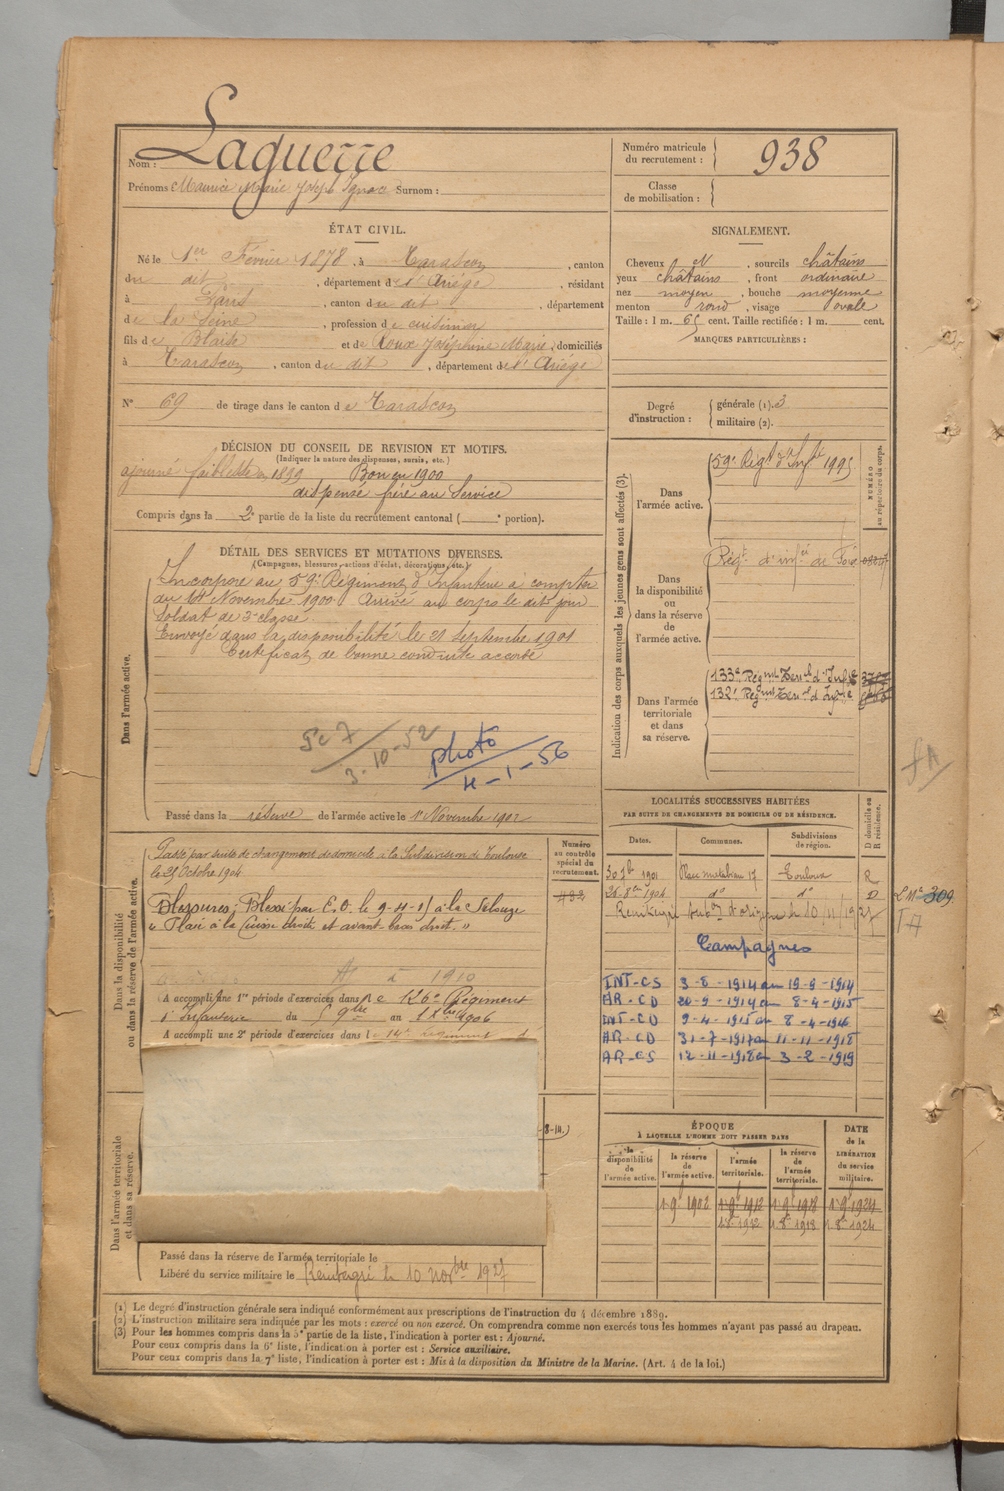 Nom : Laguerre
Prénoms : Maurice Marie Joseph Ignace Surnom :
Numéro matricule du recrutement : 938
Classe de mobilisation :
ÉTAT CIVIL.
Né le 1er Février 1878, à Tarascon, canton
du dit, département de l'Ariège, résidant
à Paris, canton du dit, département
de la Seine, profession de cuisinier
fils de Blaise et de Roux Joséphine Marie, domiciliés
à Tarascon, canton du dit, département de l'Ariège
N° 69 de tirage dans le canton de Tarascon
SIGNALEMENT.
Cheveux N, sourcils châtains
yeux châtains, front ordinaire
nez moyen, bouche moyenne
menton rond, visage ovale
Taille : 1 m. 65 cent. Taille rectifiée : 1 m. cent.
MARQUES PARTICULIÈRES :
Degré d'instruction : générale (1). 3
militaire (2).
DÉCISION DU CONSEIL DE REVISION ET MOTIFS.
(Indiquer la nature des dispenses, sursis, etc.)
ajourné faiblesse en 1899 Bon en 1900
dispensé frère au Service
Compris dans la 2e partie de la liste du recrutement cantonal ( e portion).
DÉTAIL DES SERVICES ET MUTATIONS DIVERSES.
(Campagnes, blessures, actions d'éclat, décorations, etc.)
Dans l'armée active.
Incorporé au 59e Régiment d'Infanterie à compter
du Novembre 1900 Arrivé au corps le dit jour
Soldat de 2e classe.
Envoyé dans la disponibilité le 21 Septembre 1901
Certificat de bonne conduite accordé
3-10-52
photo
4-1-56
Passé dans la réserve de l'armée active le 1er Novembre 1902
Indication des corps auxquels les jeunes gens sont affectés (3).
NUMÉRO au répertoire du corps.
Dans l'armée active.
59e Régt d'Infie
Dans la disponibilité ou dans la réserve de l'armée active.
Régt d'infie de Foix
Dans l'armée territoriale et dans sa réserve.
133e Régiment Terial d'Infie
132e Régiment Terial d'Infie
Dans la disponibilité ou dans la réserve de l'armée active.
Numéro au contrôle spécial du recrutement.
Passé par suite de changement de domicile à la Subdivision de Toulouse
le 25 Octobre 1904
Blessures : Blessé par E.O. le 9-4-15 à la Selouze
« Plaie à la Cuisse droite et avant-bras droit. »
1910
A accompli une 1re période d'exercices dans le 126e Régiment
d'Infanterie du 5 9bre au 1 Xbre 1906
A accompli une 2e période d'exercices dans le 14e Régiment d'
LOCALITÉS SUCCESSIVES HABITÉES
PAR SUITE DE CHANGEMENTS DE DOMICILE OU DE RÉSIDENCE.
D domicile ou R résidence.
Dates. Communes. Subdivisions de région.
30 7b 1901 Place matabiau 17 Toulouse R
1904 do do D
309
Campagnes
INT-CS 3-8-1914 au 19-9-1914
AR-CD 20-9-1914 au 8-4-1915
INT-CD 9-4-1915 au 8-4-1916
AR-CD 31-7-1917 au 11-11-1918
AR-CS 12-11-1918 au 3-2-1919
ÉPOQUE
À LAQUELLE L'HOMME DOIT PASSER DANS
DATE de la LIBÉRATION du service militaire.
la disponibilité de l'armée active. la réserve de l'armée active. l'armée territoriale. la réserve de l'armée territoriale.
1 9b 1902 1 9b 1912 1 9b 1918 1 9b 1924
1 8b 1912 1 8b 1918 1 8b 1924
Dans l'armée territoriale et dans sa réserve.
Passé dans la réserve de l'armée territoriale le
Libéré du service militaire le Réintégré le 10 novbre 1927
(1) Le degré d'instruction générale sera indiqué conformément aux prescriptions de l'instruction du 4 décembre 1889.
(2) L'instruction militaire sera indiquée par les mots : exercé ou non exercé. On comprendra comme non exercés tous les hommes n'ayant pas passé au drapeau.
(3) Pour les hommes compris dans la 5e partie de la liste, l'indication à porter est : Ajourné.
Pour ceux compris dans la 6e liste, l'indication à porter est : Service auxiliaire.
Pour ceux compris dans la 7e liste, l'indication à porter est : Mis à la disposition du Ministre de la Marine. (Art. 4 de la loi.)